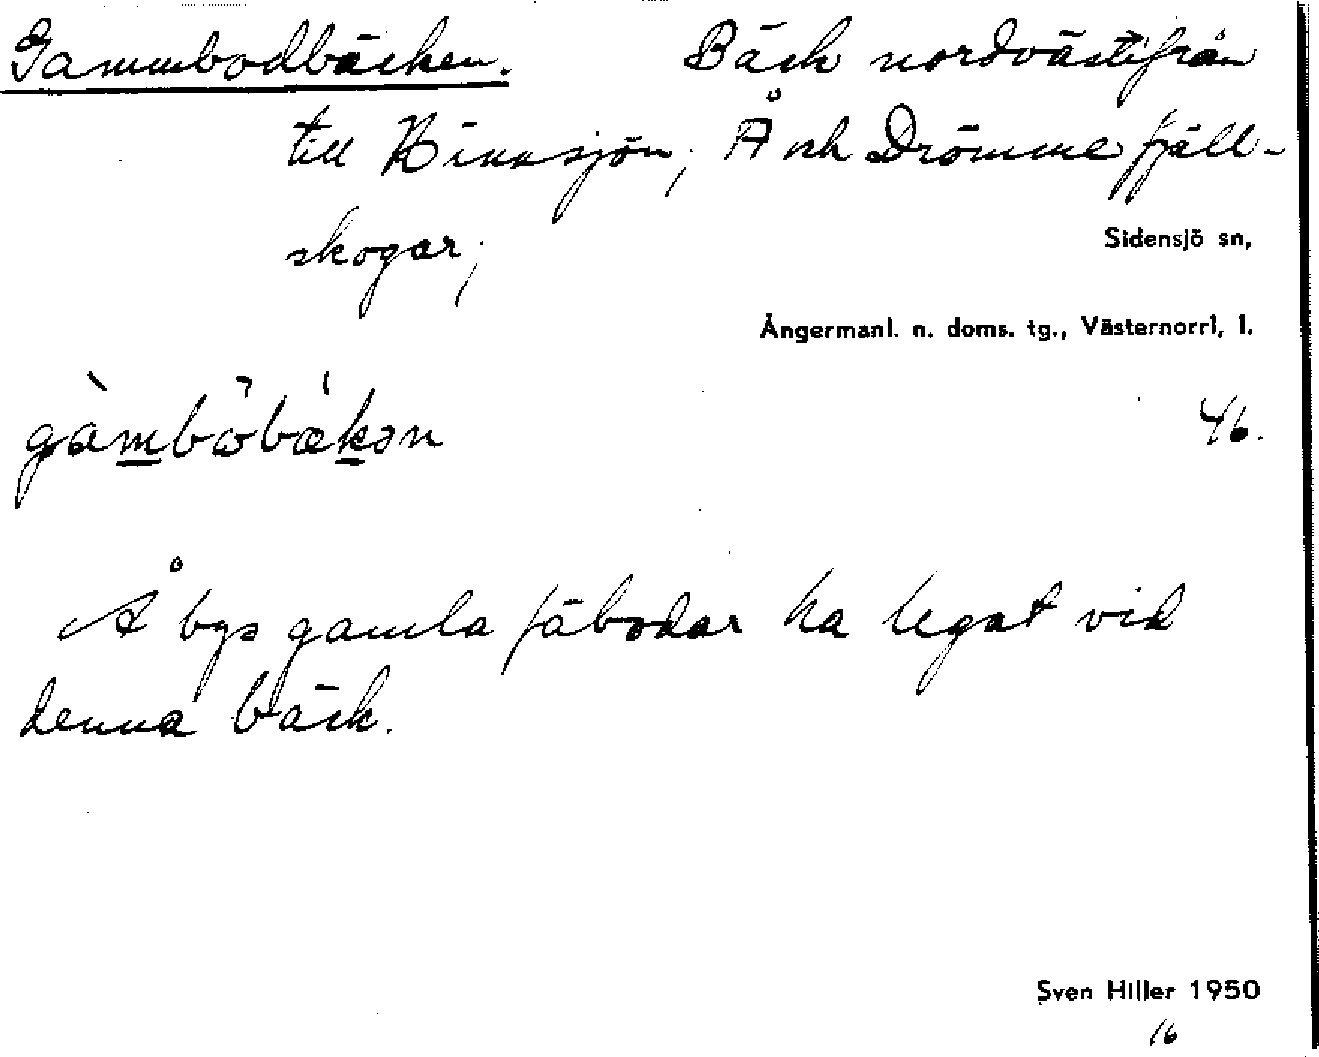 Gammbodbäcken. Bäck nordvästifrån
till Hinnsjön; Å och Drömme fjäll-
skogar;
Sidensjö sn,
Ångermanl. n. doms. tg., Västernorrl. l.
gàmbòbǽkən
46.
Å bys gamla fäbodar ha legat vid
denna bäck.
Sven Hiller 1950
16